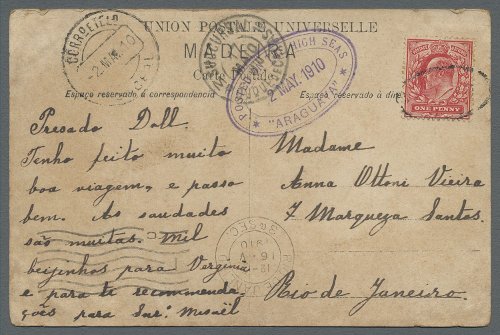 UNION POSTALE UNIVERSELLE
Espaço reservado á correspondencia
Espaço reservado á dire
CORREIO
2 MAI 10
POSTED ON HIGH SEAS
2 MAY. 1910
"ARAGUAYA"
ONE PENNY
Presado Doll.
Tenho feito muito
boa viagem, e passo
bem. As saudades
são muitas. Mil
beijinhos para Verginia
e para ti recomenda-
ções para Snr. Misaël
Madame
Anna Ottoni Vieira
7 Marqueza Santos.
Rio de Janeiro.
3ª SECÇ
1910
16